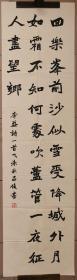 回樂峯前沙似雪受降城外月
如霜不知何處吹蘆管一夜征
人盡望鄉
李益詩一首